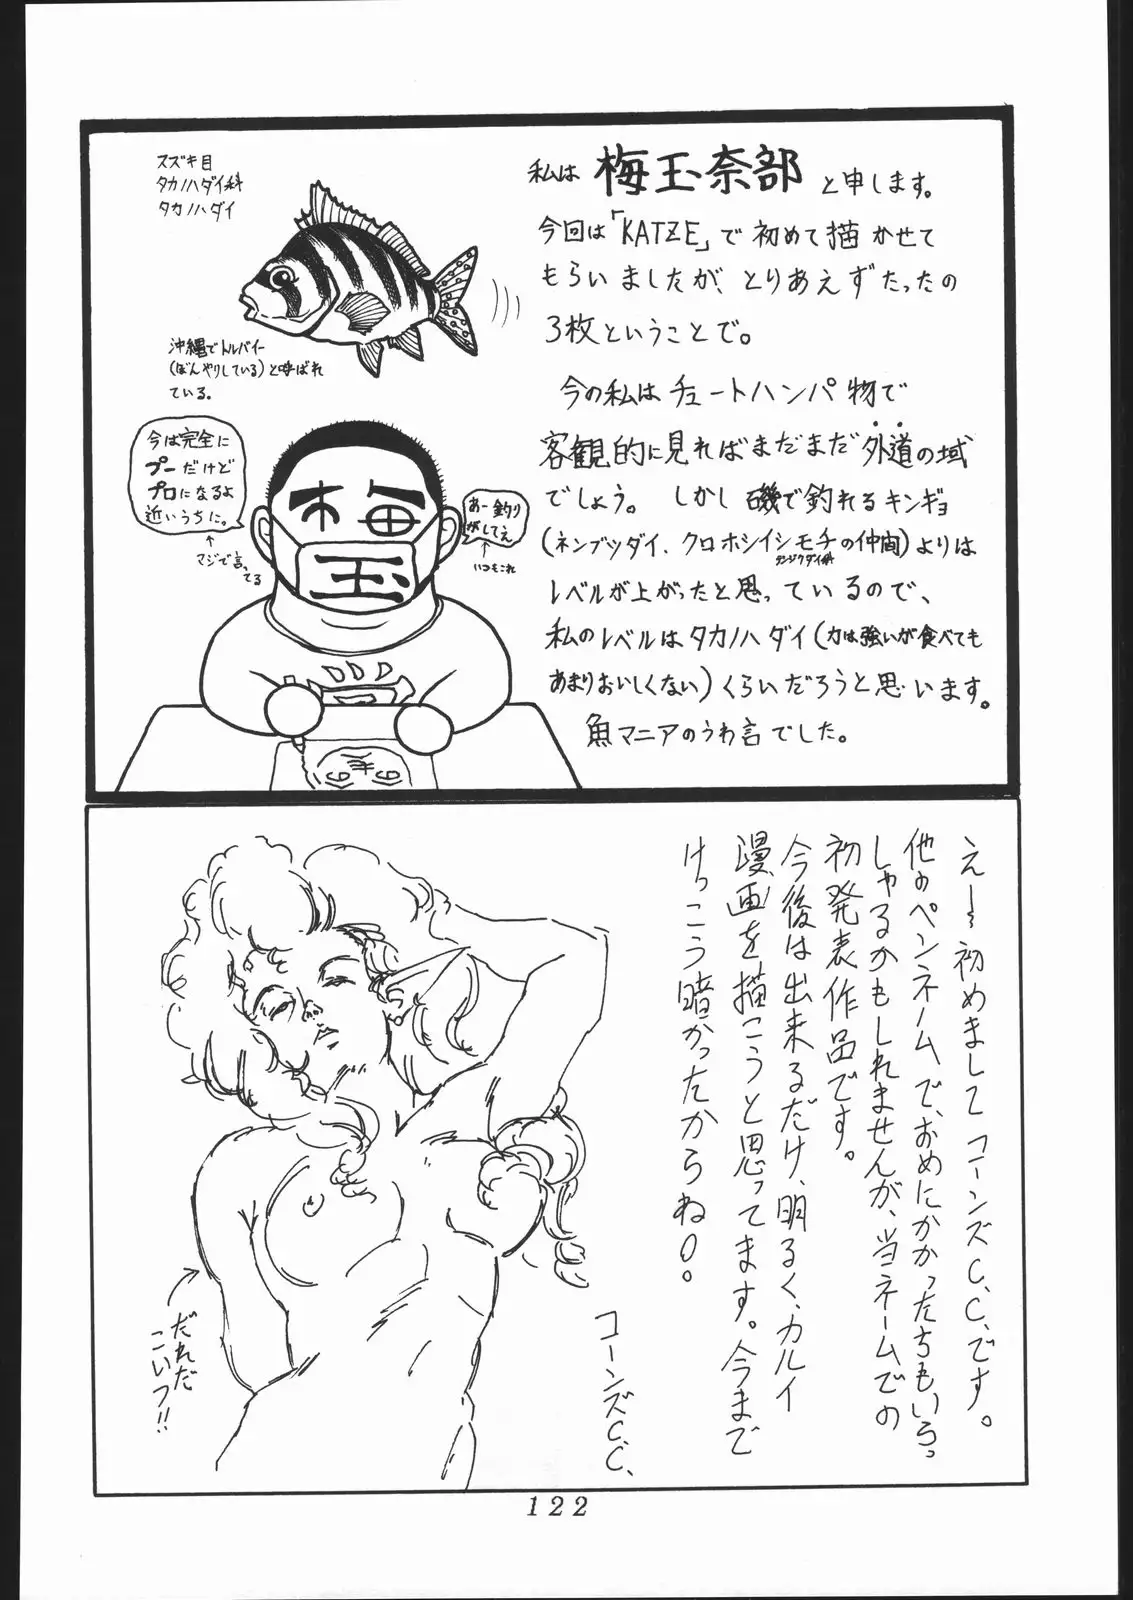 スズキ目
タカノハダイ科
タカノハダイ
沖縄でトルバイー
(ぼんやりしている)と呼ばれ
ている。
私は 梅玉奈部 と申します。
今回は「KATZE」で初めて描かせて
もらいましたが、とりあえずたったの
3枚ということで。
今の私はチュートハンパ物で
客観的に見ればまだまだ外道の域
でしょう。しかし磯で釣れるキンギョ
(ネンブツダイ、クロホシイシモチの仲間)よりは
テンジクダイ科
レベルが上がったと思っているので、
私のレベルはタカノハダイ(力は強いが食べても
あまりおいしくない)くらいだろうと思います。
魚マニアのうわ言でした。
今は完全に
プーだけど
プロになるよ
近いうちに。
マジで言ってる
あー釣り
がしてえ
いつもこれ
梅
玉
えー初めましてコーンズC,C,です。
他のペンネームで、おめにかかったちもいらっ
しゃるかもしれませんが、当ネームでの
初発表作品です。
今後は出来るだけ、明るく、カルイ
漫画を描こうと思ってます。今まで
けっこう暗かったからね。
コーンズC,C,
だれだ
こいつ!!
122